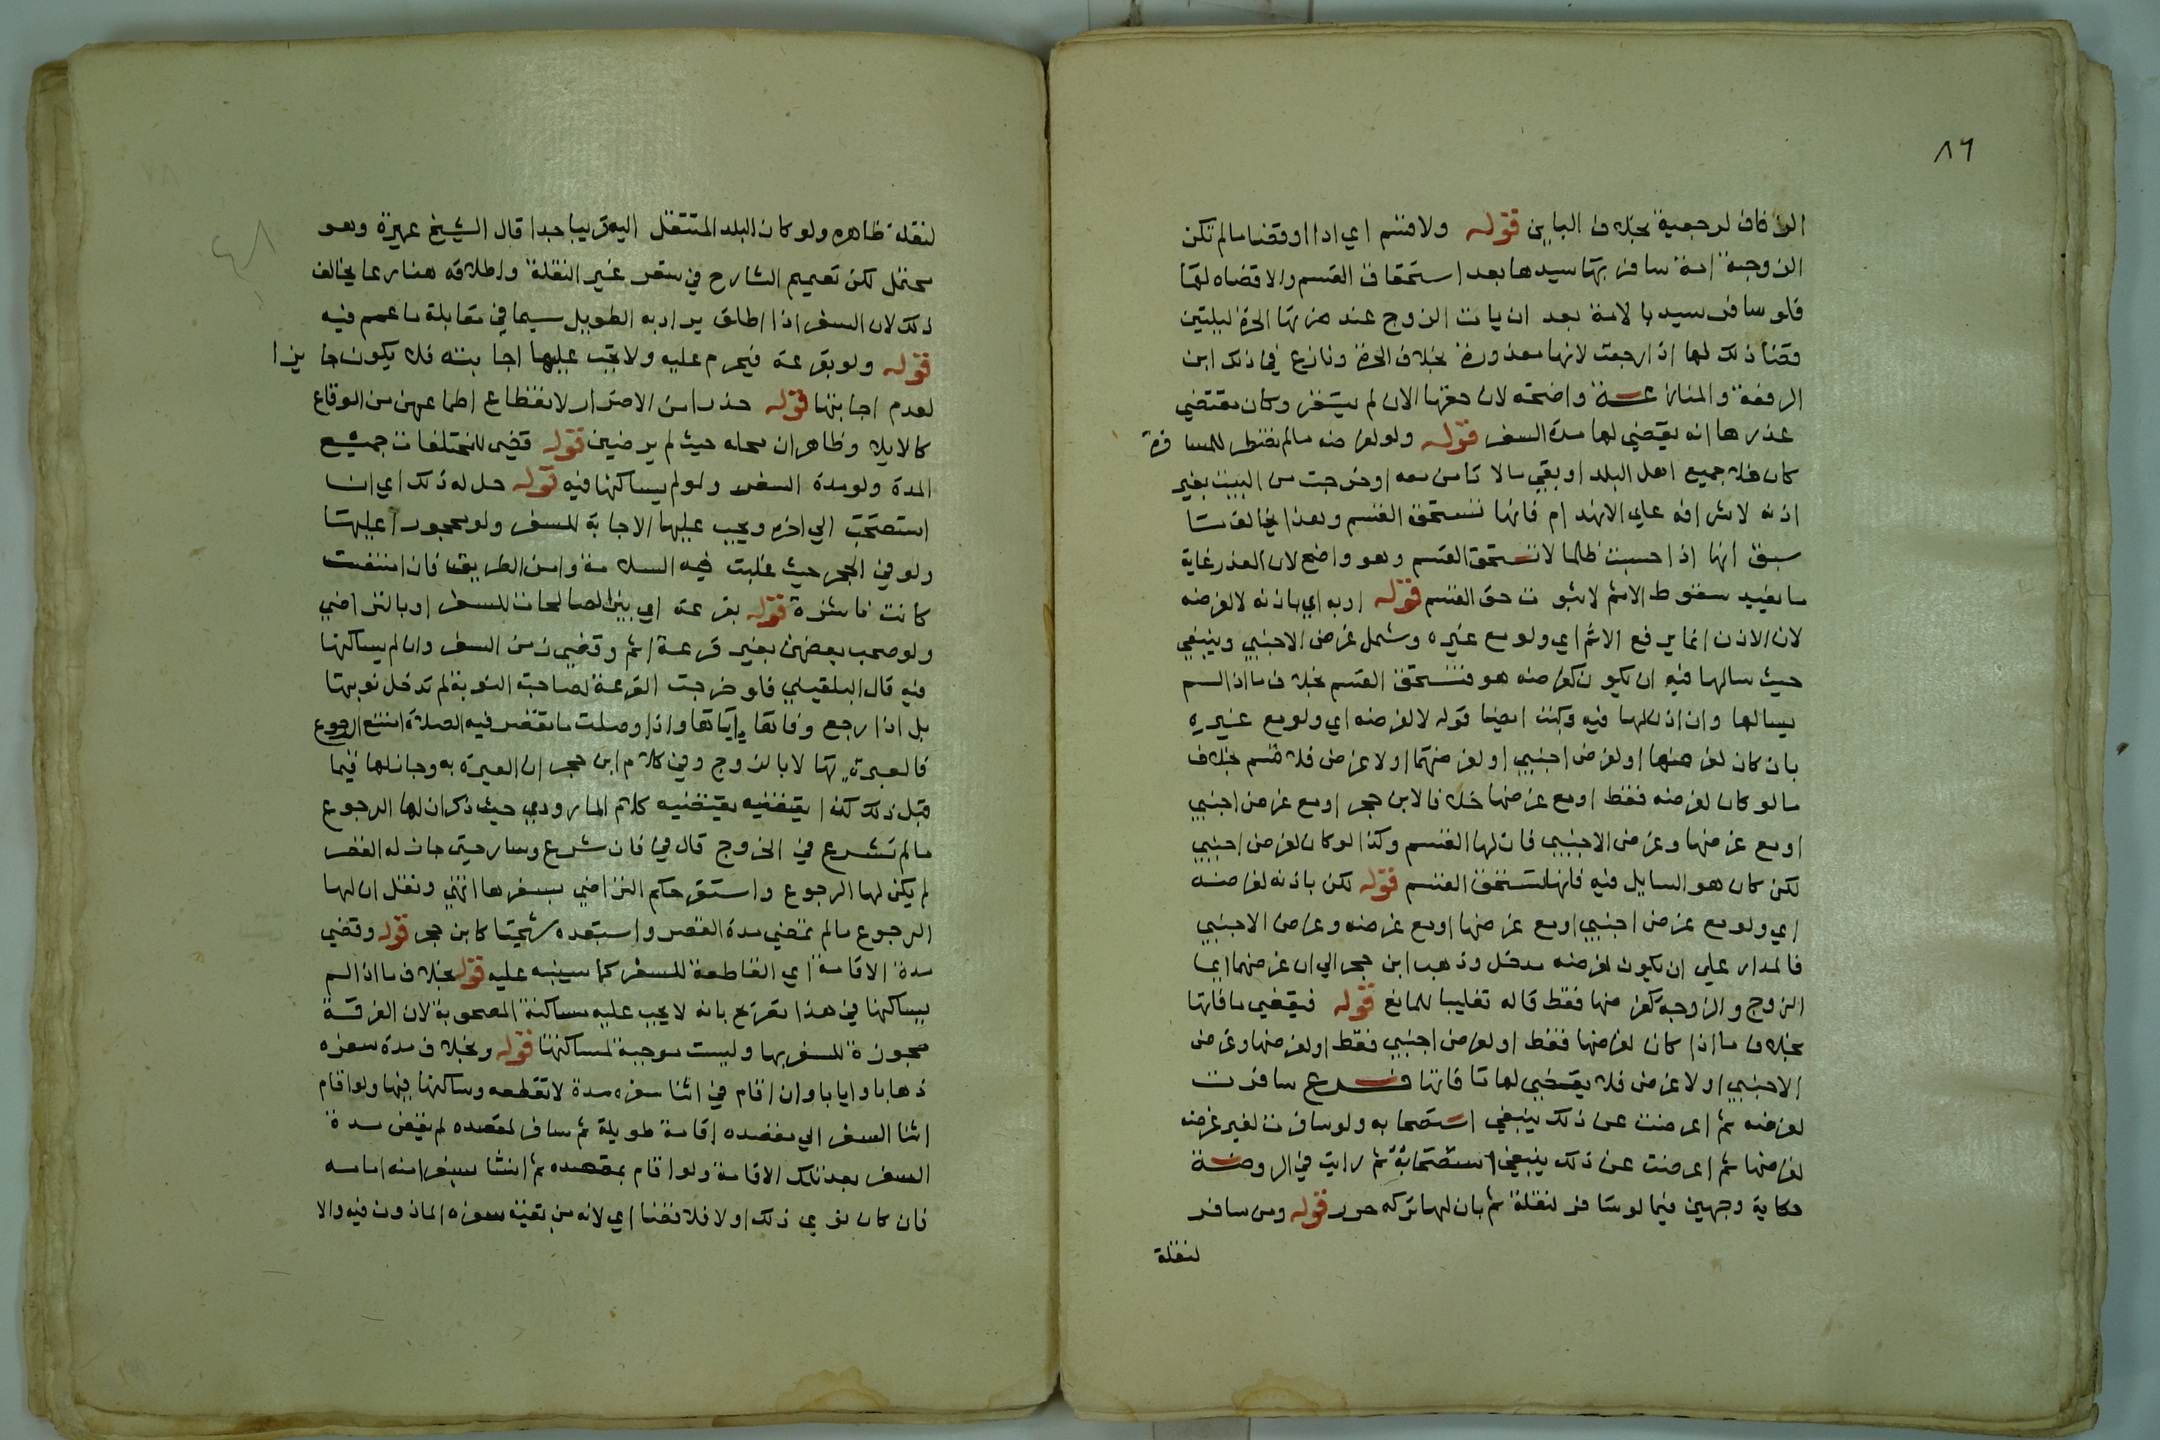 ٨٦
الزفاف لرجعية بخلاف البائن قوله ولا قسم اي اداا وقضا ما لم تكن
الزوجة امة سافر بها سيدها بعد استحقاق القسم والا قضاه لها
فلو سافر سيد بالامة بعد ان بات الزوج عند حرتها الحرة ليلتين
قضا ذلك لها اذا رجعت لانها معذورة بخلاف الحرة ونازع في ذلك ابن
الرفعة والمنازعة واضحة لان حقها الان لم يستقر وكان مقتضي
عذرها انه يقضي لها مدة السفر قوله ولو لغرضه ما لم تضطر للمسافرة
كان خلا جميع اهل البلد او بقي ما لا تامن معه او خرجت من البيت بغير
اذنه لاشرافه علي الانهدام فانها تستحق القسم وهذا يخالف ما
سبق انها اذا حبست ظلما لا تستحق القسم وهو واضح لان العذر غاية
ما يفيد سقوط الاثم لا ثبوت حق القسم قوله او به اي باذنه لا لغرضه
لان الاذن انما يرفع الاثم اي ولو مع غيره وشمل غرض الاجنبي وينبغي
حيث سالها فيه ان يكون كغرضه هو فتستحق القسم بخلاف ما اذا لم
يسالها وان اذن لها فيه وكتب ايضا قوله لا لغرضه اي ولو مع غيره
بان كان لغرضها او لغرض اجنبي او لغرضهما او لا غرض فلا قسم بخلاف
ما لو كان لغرضه فقط او مع غرضها خلافا لابن حجر او مع غرض اجنبي
او مع غرضها وغرض الاجنبي فان لها القسم وكذا لو كان لغرض اجنبي
لكن كان هو السايل فيه فانها تستحق القسم قوله لكن باذنه لغرضه
اي ولو مع غرض اجنبي او مع غرضها او مع غرضه وغرض الاجنبي
فالمدار علي ان يكون لغرضه مدخل وذهب ابن حجر الي ان غرضهما ايما
الزوج والزوجة كغرضها فقط قاله تغليبا للمانع قوله فيقضي ما فاتها
بخلاف ما اذا كان لغرضها فقط او لغرض اجنبي فقط او لغرضها وغرض
الاجنبي او لا غرض فلا يقضي لها ما فاتها فرع سافرت
لغرضه ثم اعرضت عن ذلك ينبغي استصحابه ولو سافرت لغير غرضه
لغرضها ثم اعرضت عن ذلك ينبغي استصحابة ثم رايت في الروضة
حكاية وجهين فيما لو سافر لنقلة ثم بان لها تركه حرر قوله ومن سافر
لنقلة
لنقلة ظاهره ولو كان البلد المنتقل اليه قريبا جدا قال الشيخ عميرة وهو
محتمل لكن تعميم الشارح في سفر غير النقلة واطلاقه هنا ربما يخالف
ذلك لان السفر اذا اطلق يراد به الطويل سيما في مقابلة ما عمم فيه
قوله ولو بقرعة فيحرم عليه ولا يجب عليها اجابته فلا يكون جايزا
لعدم اجابتها قوله حذرا من الاضرار لانقطاع اطماعهن من الوقاع
كالايلا وظاهر ان محله حيث لم يرضين قوله قضي للمتخلفات جميع
المدة ولو مدة السفر ولو لم يساكنها فيه قوله حل له ذلك اي ان
استصحب الي اخره ويجب عليها الاجابة للسفر ولو محجورا عليها
ولو في البحر حيث غلبت فيه السلامة وامن الطريق فان امتنعت
كانت ناشزة قوله بقرعة اي بين الصالحات للسفر او بالتراضي
ولو صحب بعضهن بغير قرعة اثم وقضي من السفر وان لم يساكنها
فيه قال البلقيني فلو خرجت القرعة لصاحبة النوبة لم تدخل نوبتها
بل اذا رجع وفاها اياها واذا وصلت ما تقصر فيه الصلاة امتنع الرجوع
فالعبرة بها لا بالزوج وفي كلام ابن حجر ان العبرة به وجاز لها فيما
قبل ذلك لكنه يقتضيه كلام الماوردي حيث ذكر ان لها الرجوع
ما لم تشرع في الخروج قال في فان شرع وسار حتي جاز له القصر
لم يكن لها الرجوع واستقر حكم التراضي بسفرها انتهي ونقل ان لها
الرجوع ما لم تمضي مدة القصر واستبعده شيخنا كابن حجر قوله وقضي
مدة الاقامة اي القاطعة للسفر كما سينبه عليه قوله بخلاف ما اذا لم
يساكنها في هذا تصريح بانه لا يجب عليه مساكنة المصحوبة لان القرعة
مجوزة للسفر بها وليست موجبة لمساكنتها قوله وبخلاف مدة سفره
ذهابا وايابا وان اقام في اثنا سفره مدة لا تقطعه وساكنها فيها ولو اقام
اثنا السفر الي مقصده اقامة طويلة ثم سافر لمقصده لم يقض مدة
السفر بعد تلك الاقامة ولو اقام بمقصده ثم انشا سفرا منه امامه
فان كان نوي ذلك اولا فلا قضا اي لانه من بقية سفره الماذون فيه والا